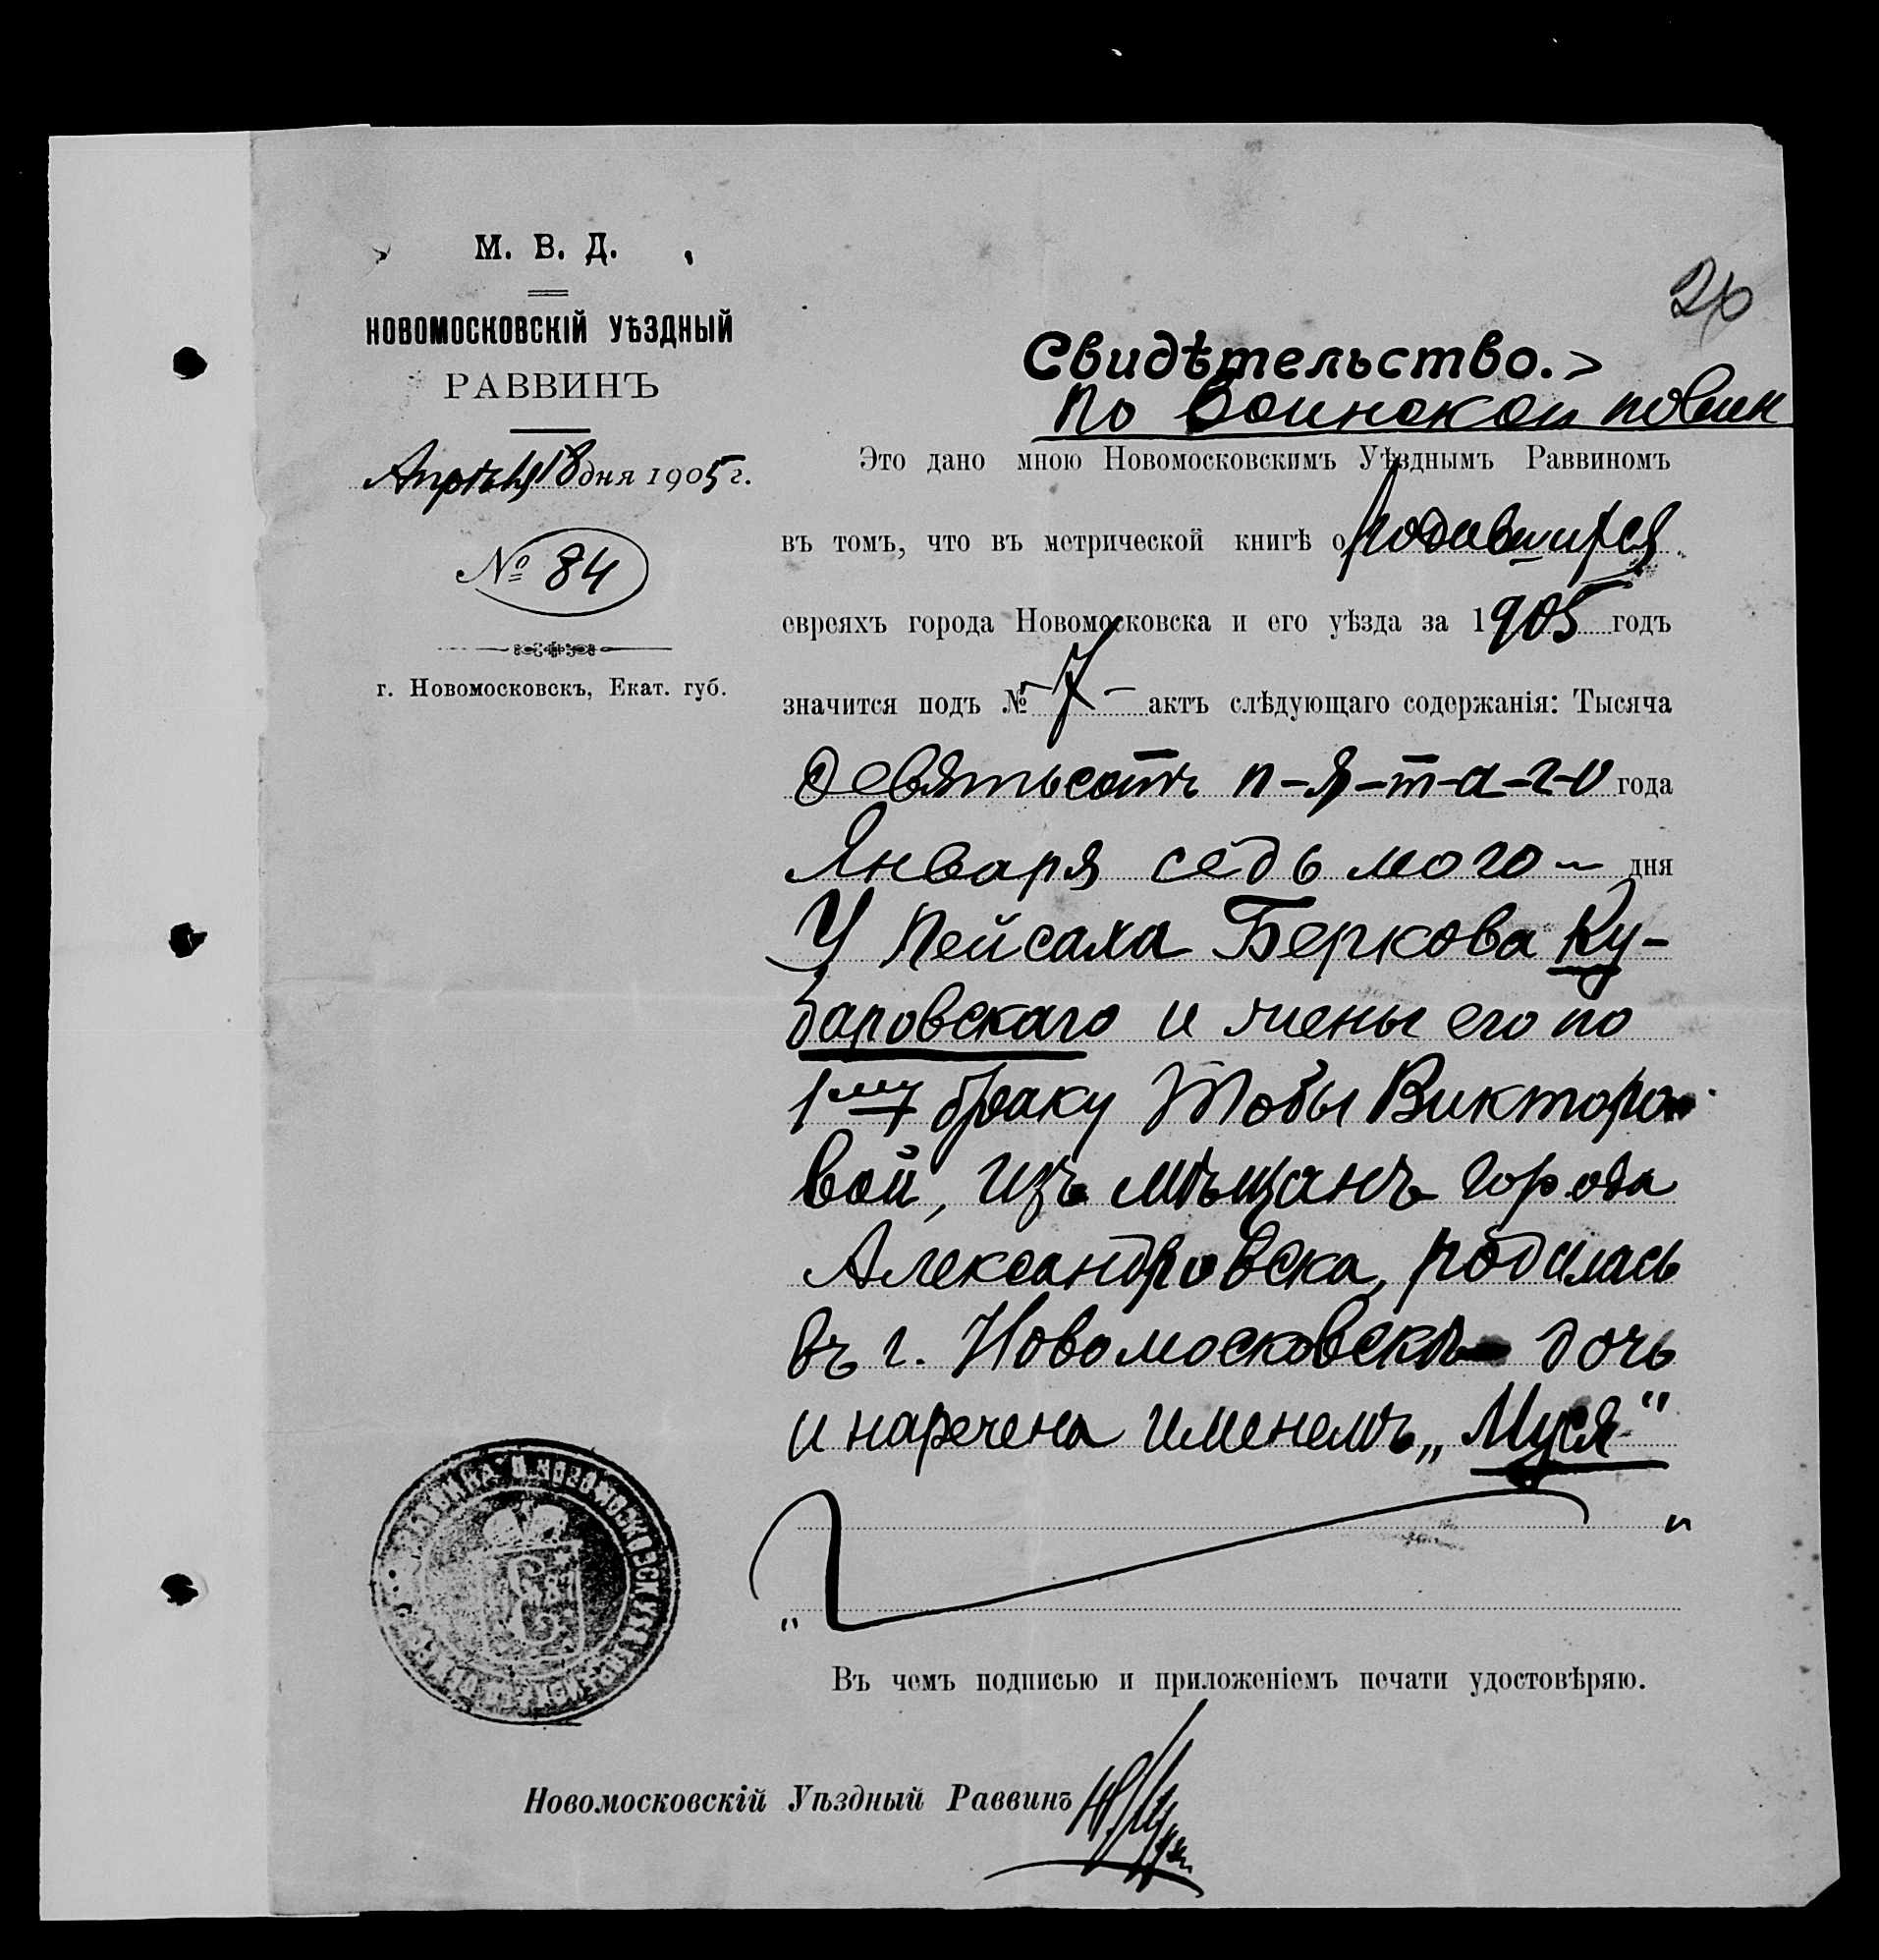 М. В. Д.
НОВОМОСКОВСКІЙ УѢЗДНЫЙ
РАВВИНЪ
Апрѣля 18 дня 1905 г.
№ 84
г. Новомосковскъ, Екат. губ.
Свидѣтельство.
по воинской повин
Это дано мною Новомосковскимъ Уѣзднымъ Раввиномъ
въ томъ, что въ метрической книгѣ о родившихся
евреяхъ города Новомосковска и его уѣзда за 1905 годъ
значится подъ № 7 – актъ слѣдующаго содержанія: Тысяча
девятьсотъ п-я-т-а-г-о года
Января седьмого дня
У Пейсаха Беркова Ку-
баровскаго и жены его по
1му браку Тобы Викторо
вой, изъ мѣщанъ города
Александровска, родилась
въ г. Новомосковскѣ дочь
и наречена именемъ „Муся"
Въ чемъ подписью и приложеніемъ печати удостовѣряю.
Новомосковскій Уѣздный Раввинъ